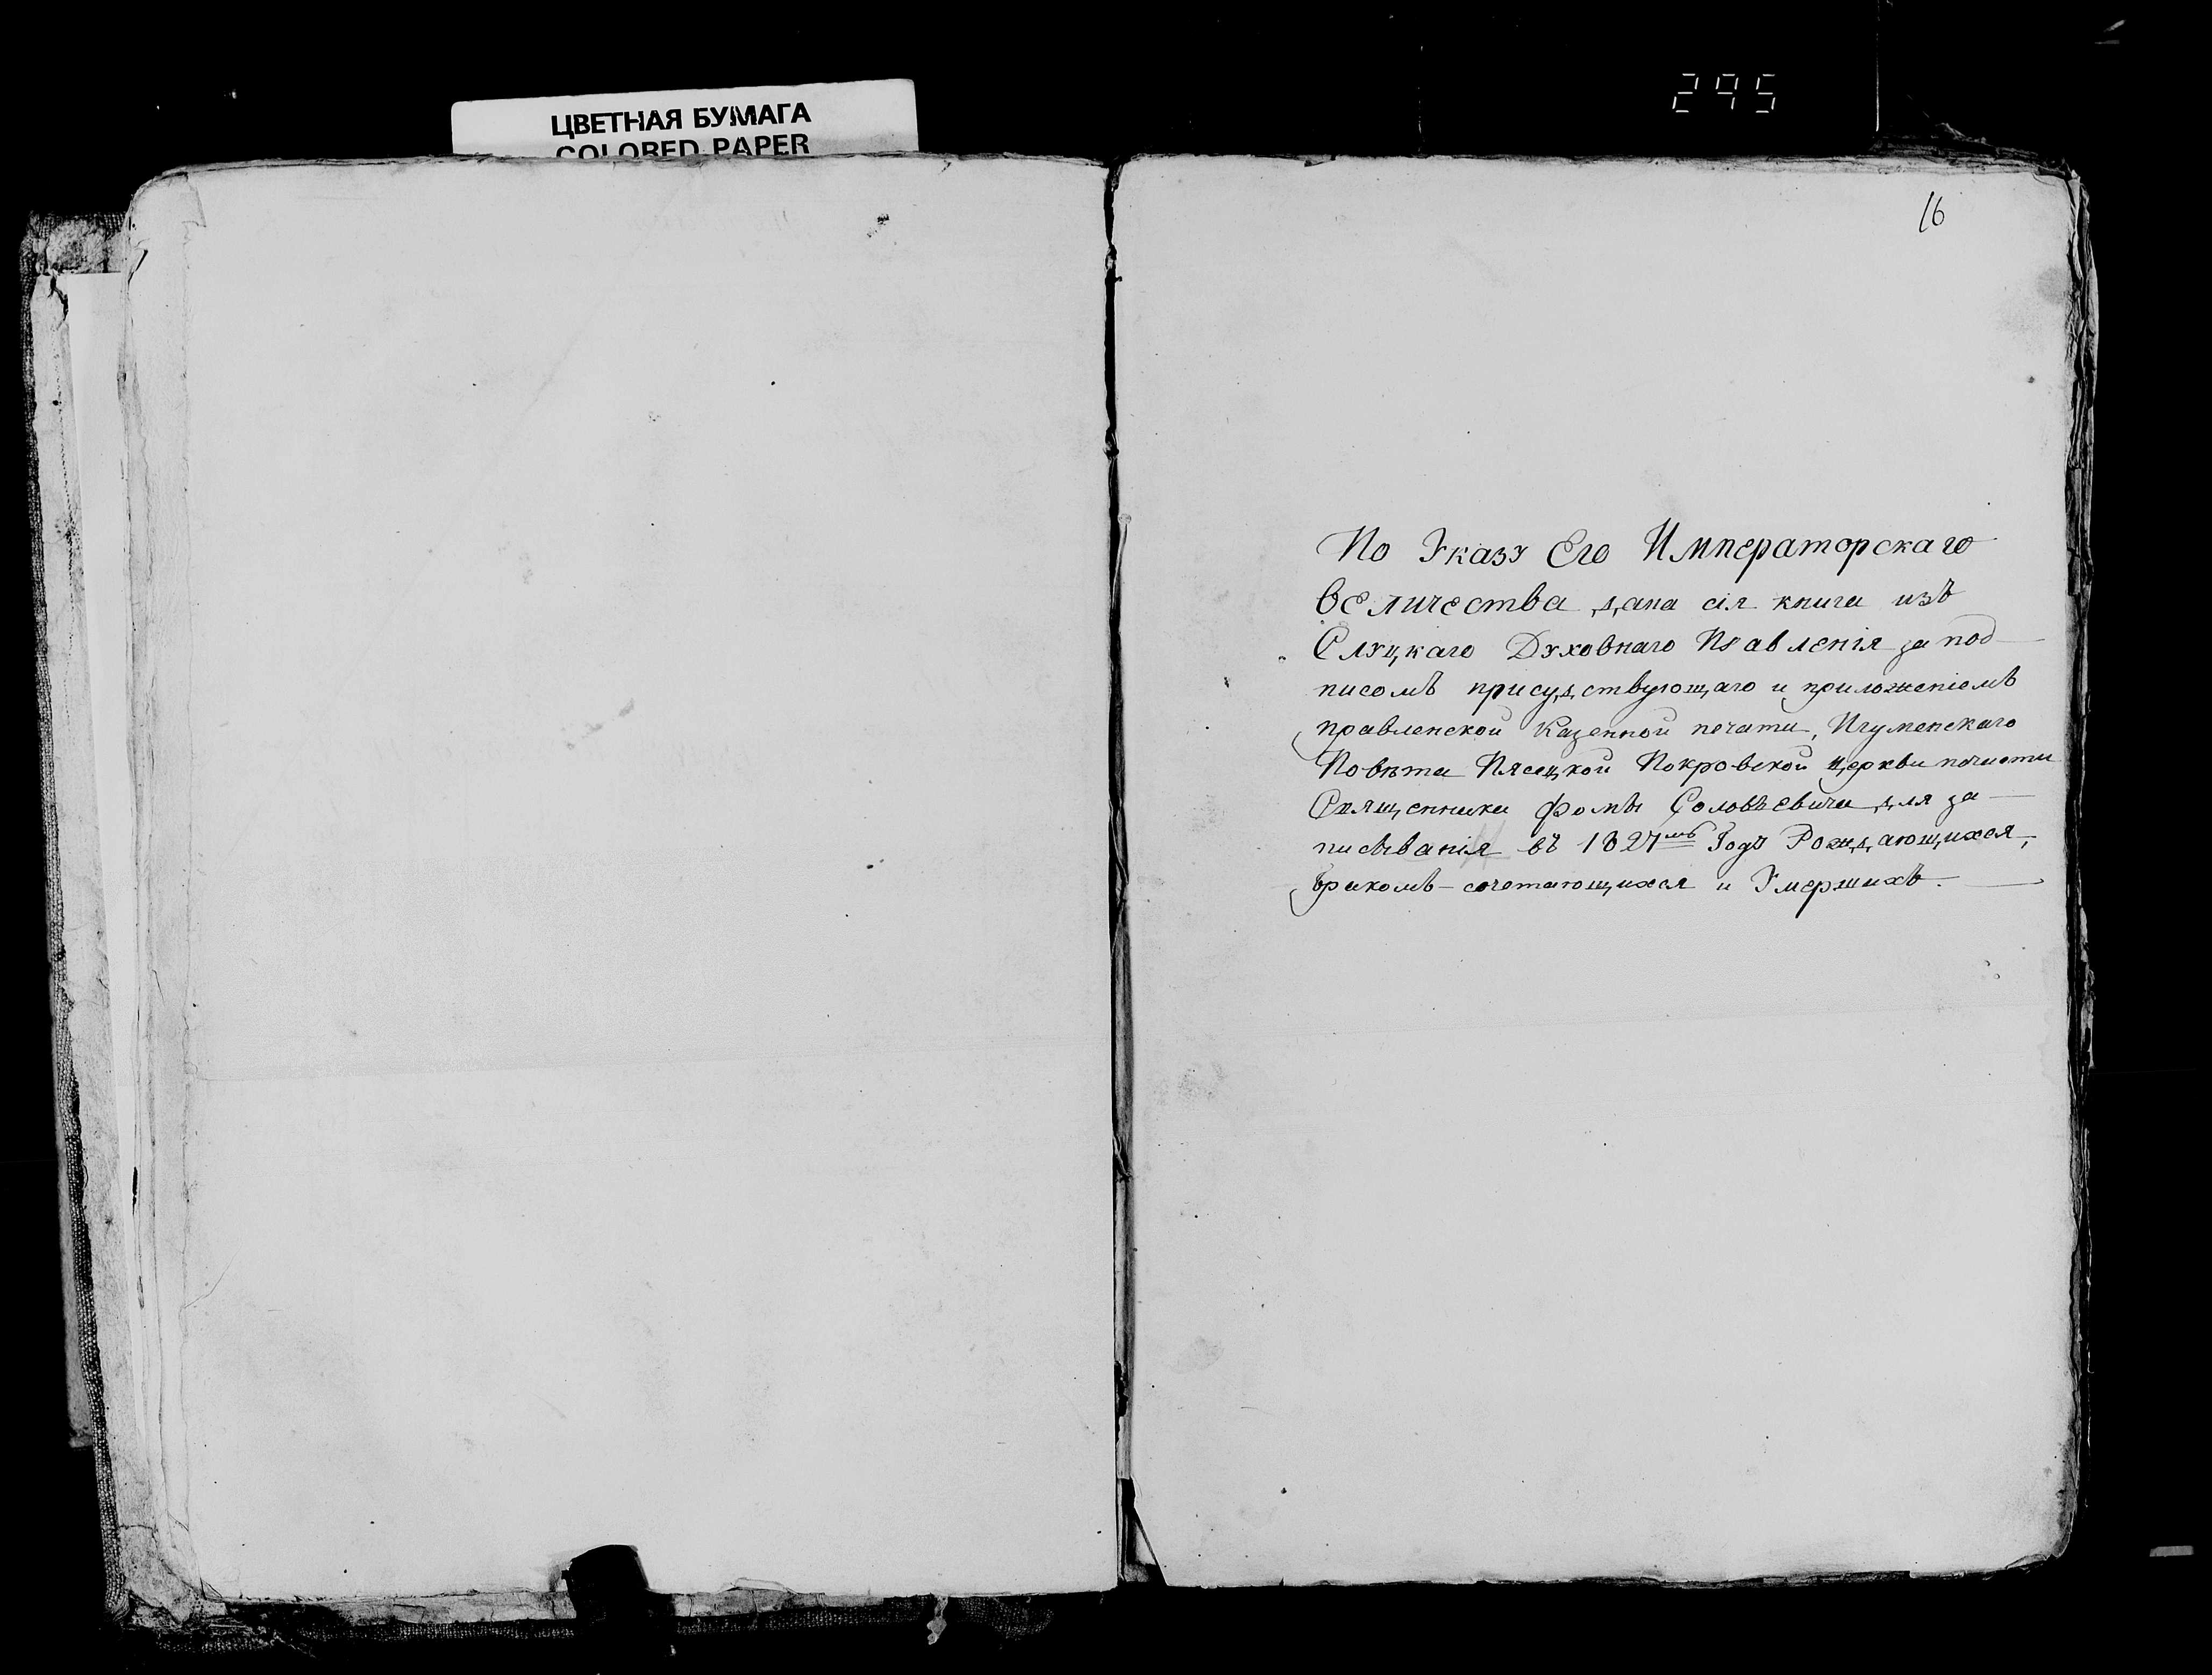 ЦВЕТНАЯ БУМАГА
COLORED PAPER
295
16
По Указу Его Императорскаго
величества дана сія книга изъ
Слуцкаго Духовнаго Правленія за под
писомъ присудствующаго и приложеніемъ
правленской Казенной печати, Игуменскаго
Повѣта Пясецкой Покровской церкви
Священника Фомы Соловѣевича для за
писыванія въ 1827мъ Годѣ Рождающихся,
бракомъ - сочетающихся и Умершихъ.